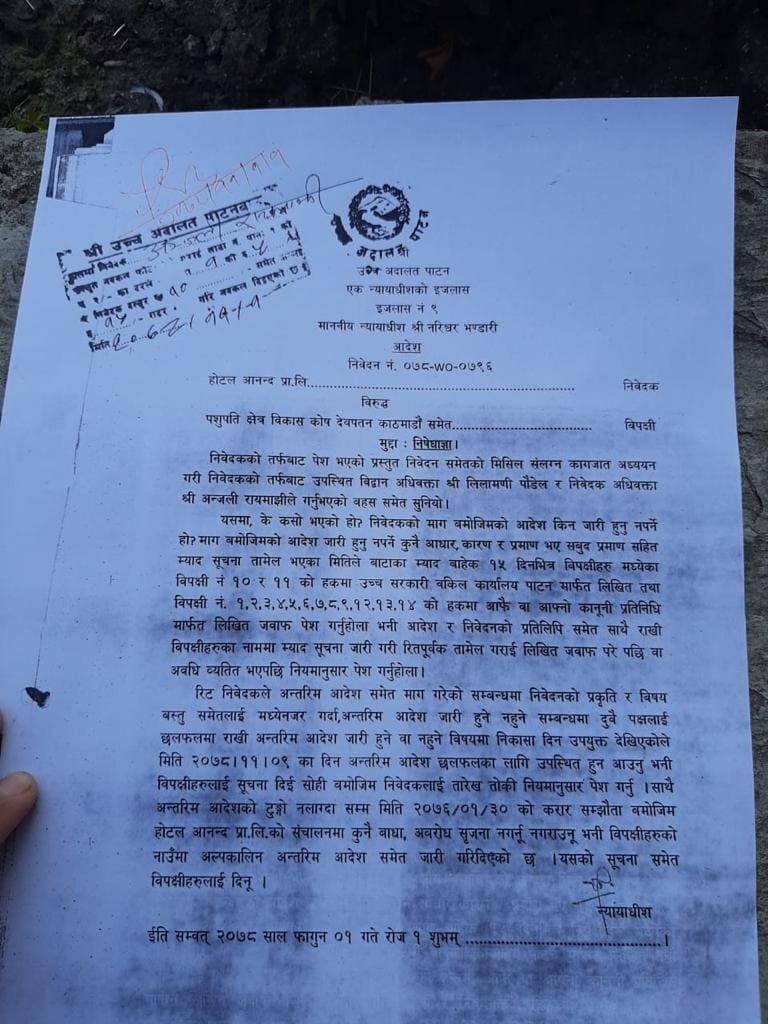 श्री उच्च अदालत पाटन
अदालत पाटन
उच्च अदालत पाटन
एक न्यायाधीशको इजलास
इजलास नं ९
माननीय न्यायाधीश श्री नरिश्वर भण्डारी
आदेश
निवेदन नं. ०७८-WO-०७९६
होटल आनन्द प्रा.लि............................................................ निवेदक
विरुद्ध
पशुपति क्षेत्र विकास कोष देवपतन काठमाडौं समेत................................ विपक्षी
मुद्दा : निषेधाज्ञा।
निवेदकको तर्फबाट पेश भएको प्रस्तुत निवेदन समेतको मिसिल संलग्न कागजात अध्ययन
गरी निवेदकको तर्फबाट उपस्थित विद्वान अधिवक्ता श्री लिलामणी पौडेल र निवेदक अधिवक्ता
श्री अन्जली रायमाझीले गर्नुभएको बहस समेत सुनियो।
यसमा, के कसो भएको हो? निवेदकको माग बमोजिमको आदेश किन जारी हुनु नपर्ने
हो? माग बमोजिमको आदेश जारी हुनु नपर्ने कुनै आधार, कारण र प्रमाण भए सबुद प्रमाण सहित
म्याद सूचना तामेल भएका मितिले बाटाका म्याद बाहेक १५ दिनभित्र विपक्षीहरु मध्येका
विपक्षी नं १० र ११ को हकमा उच्च सरकारी बकिल कार्यालय पाटन मार्फत लिखित तथा
विपक्षी नं. १,२,३,४,५,६,७,८,९,१२,१३,१४ को हकमा आफै वा आफ्नो कानूनी प्रतिनिधि
मार्फत लिखित जवाफ पेश गर्नुहोला भनी आदेश र निवेदनको प्रतिलिपि समेत साथै राखी
विपक्षीहरुका नाममा म्याद सूचना जारी गरी रितपूर्वक तामेल गराई लिखित जवाफ परे पछि वा
अवधि व्यतित भएपछि नियमानुसार पेश गर्नुहोला।
रिट निवेदकले अन्तरिम आदेश समेत माग गरेको सम्बन्धमा निवेदनको प्रकृति र विषय
बस्तु समेतलाई मध्येनजर गर्दा,अन्तरिम आदेश जारी हुने नहुने सम्बन्धमा दुवै पक्षलाई
छलफलमा राखी अन्तरिम आदेश जारी हुने वा नहुने विषयमा निकासा दिन उपयुक्त देखिएकोले
मिति २०७८।११।०९ का दिन अन्तरिम आदेश छलफलका लागि उपस्थित हुन आउनु भनी
विपक्षीहरुलाई सूचना दिई सोही बमोजिम निवेदकलाई तारेख तोकी नियमानुसार पेश गर्नु ।साथै
अन्तरिम आदेशको टुङ्गो नलाग्दा सम्म मिति २०७६/०१/३० को करार सम्झौता बमोजिम
होटल आनन्द प्रा.लि.को संचालनमा कुनै बाधा, अवरोध सृजना नगर्नू नगराउनू भनी विपक्षीहरुको
नाउँमा अल्पकालिन अन्तरिम आदेश समेत जारी गरिदिएको छ ।यसको सूचना समेत
विपक्षीहरुलाई दिनू ।
न्यायाधीश
ईति सम्वत् २०७८ साल फागुन ०१ गते रोज १ शुभम् ..........................................।